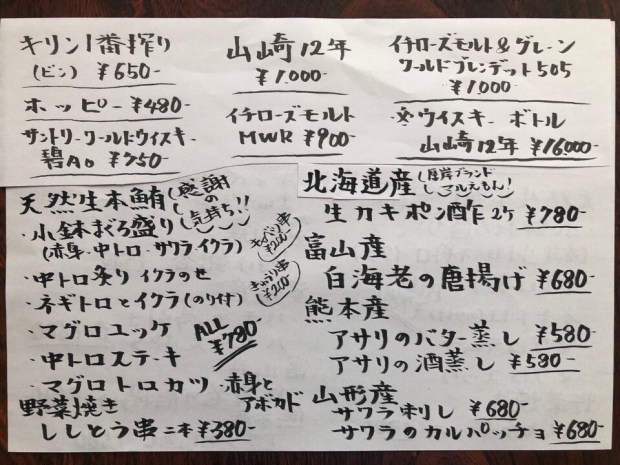 キリン1番搾り
(ビン) ¥650-
ホッピー ¥480-
サントリーワールドウィスキー
碧Ao ¥750
山崎12年
¥1,000-
イチローズモルト
MWR ¥900-
イチローズモルト&グレーン
ワールドブレンデット505
¥1,000-
※ウイスキー ボトル
山崎12年 ¥16,000-
天然生本鮪(感謝の気持ち!!)
・小鉢まぐろ盛り
(赤身・中トロ・サワライクラ)
・中トロ炙りイクラのせ
・ネギトロとイクラ(のり付)
・マグロユッケ
・中トロステーキ
・マグロトロカツ・赤身とアボカド
ALL
¥780-
¥200-
きゅうり串
¥200
野菜焼き
ししとう串二本 ¥380-
北海道産(厚岸ブランドマルえもん!)
生カキポン酢2ケ ¥780-
富山産
白海老の唐揚げ ¥680-
熊本産
アサリのバター蒸し ¥580-
アサリの酒蒸し ¥580-
山形産
サワラ刺し ¥680-
サワラのカルパッチョ ¥680-